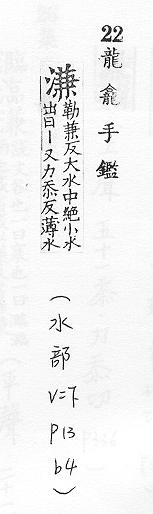 22 龍龕手鑑
溓勒兼反大水中絶小水
出曰丨又力忝反薄水
(水部
V=下
P13
b4)